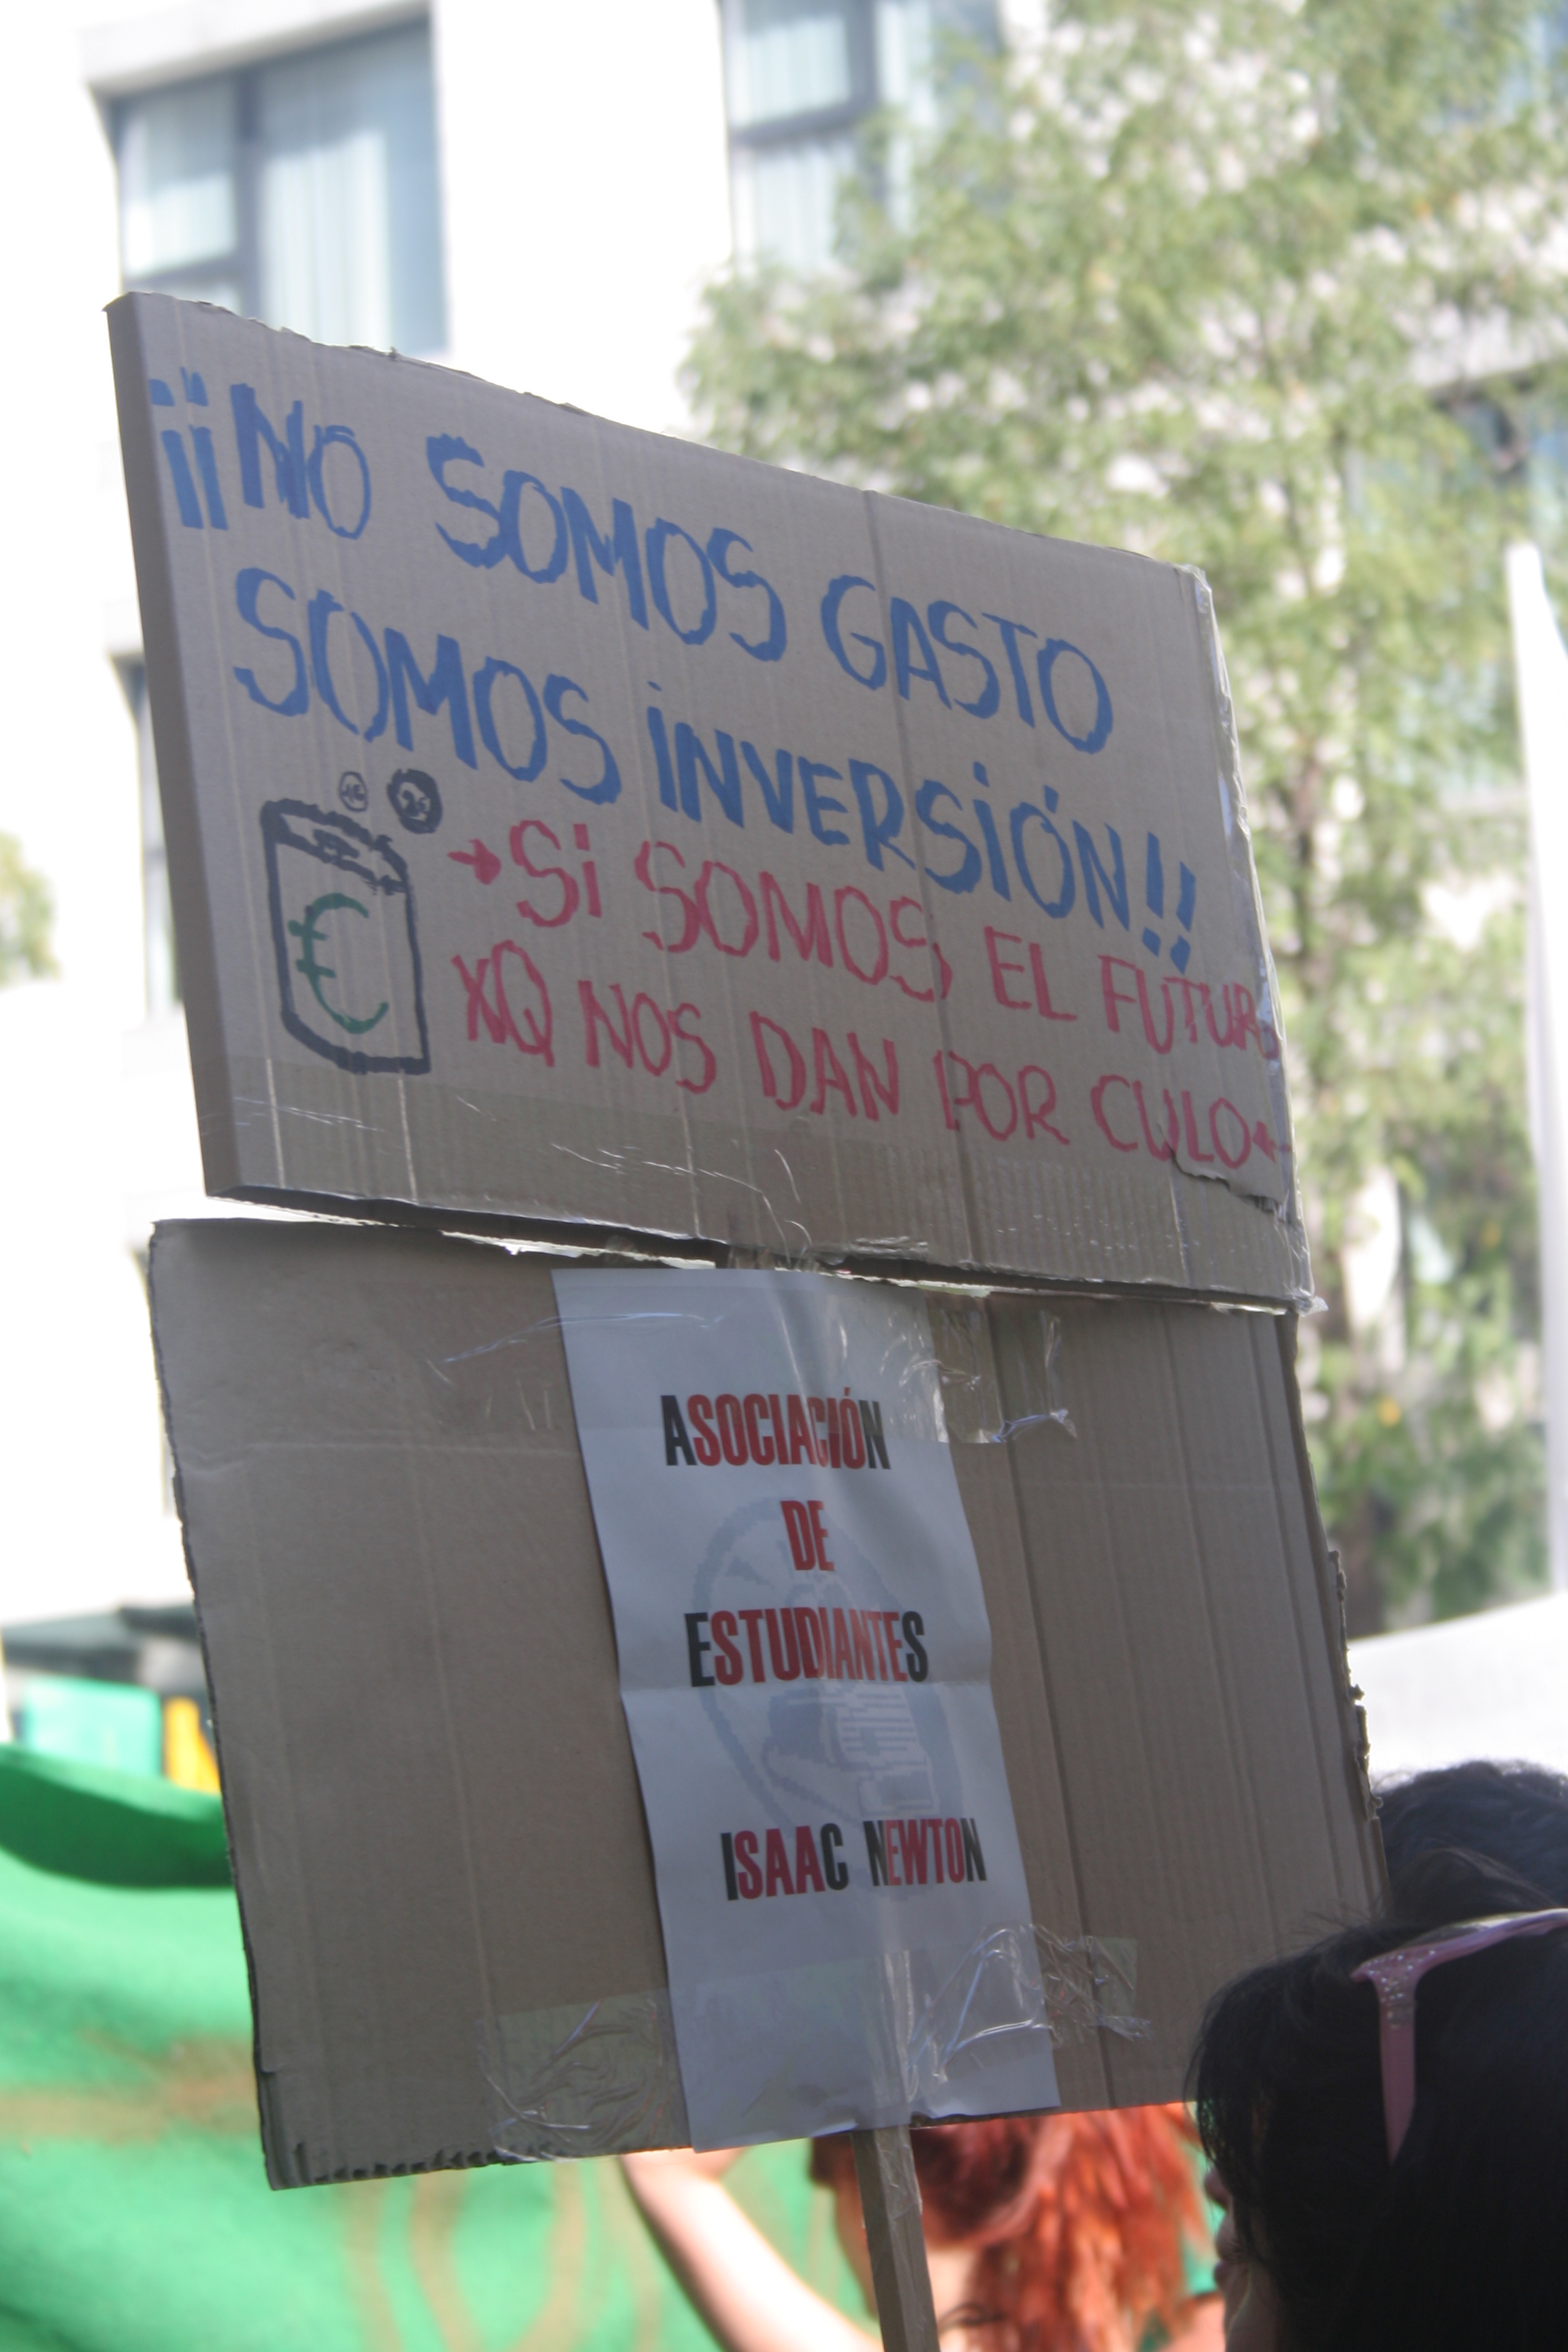 ¡¡NO SOMOS GASTO
SOMOS INVERSIÓN!!
€
→SI SOMOS EL FUTURO
XQ NOS DAN POR CULO←
ASOCIACIÓN
DE
ESTUDIANTES
ISAAC NEWTON